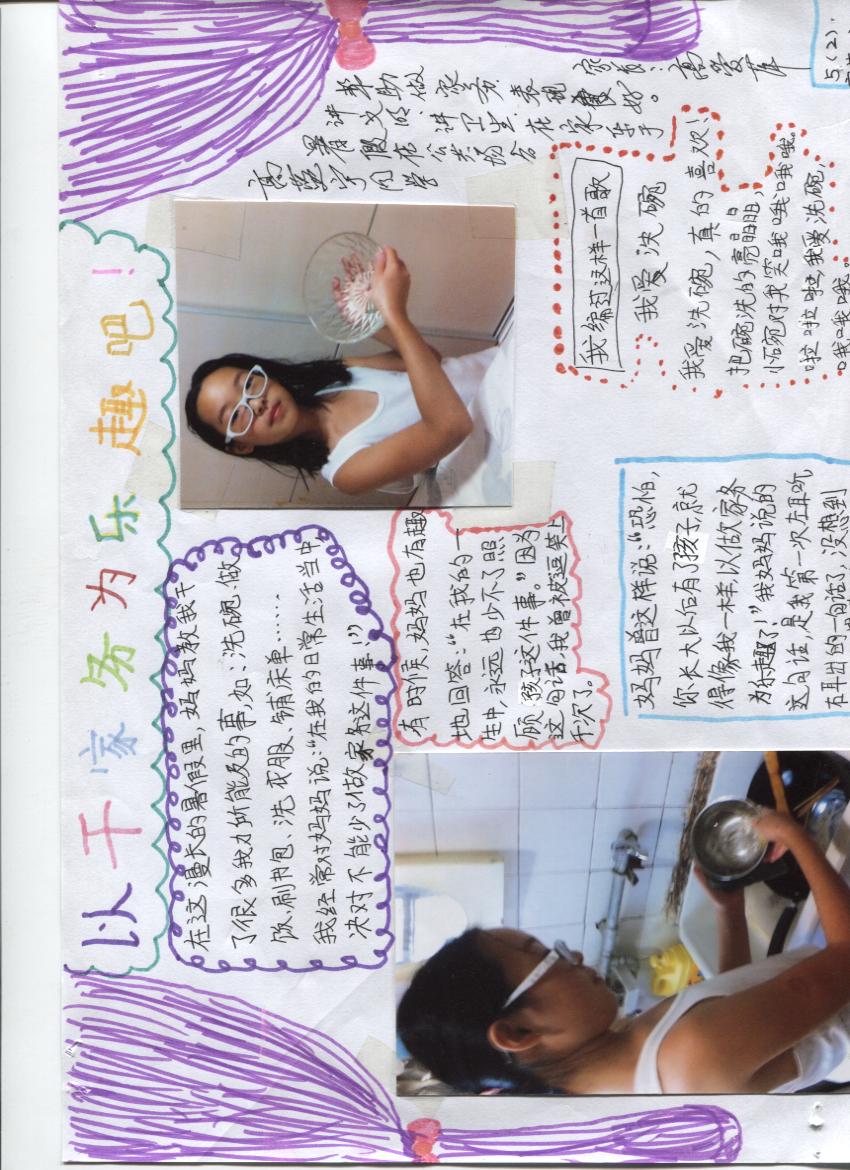 以干家务为乐趣吧!
在这漫长的暑假里,妈妈教我干
了很多我力所能及的事,如:洗碗、做
饭、刷书包、洗衣服、铺床单……
我经常对妈妈说:“在我的日常生活当中,
决对不能少了做家务这件事!”
有时候,妈妈也有趣
地回答:“在我的一
生中,永远也少不了照
顾孩子这件事。”因为
这句话,我曾被逗笑上
千次了。
妈妈曾这样说:“恐怕,
你长大以后有了孩子就
得像我一样,以做家务
为乐趣了!”我妈妈说的
这句话,是我第一次左耳听
右耳出的一句话了,没想到
同学
暑假在公共场合
讲文明、讲卫生,在家乐于
帮助做家务,表现很好。
家长:高
我编的这样一首歌
我爱洗碗
我爱洗碗,真的喜欢!
把碗洗的亮晶晶,
小碗对我笑哦哦哦哦。
啦啦啦啦,我爱洗碗,
哦哦哦哦。
5(2).